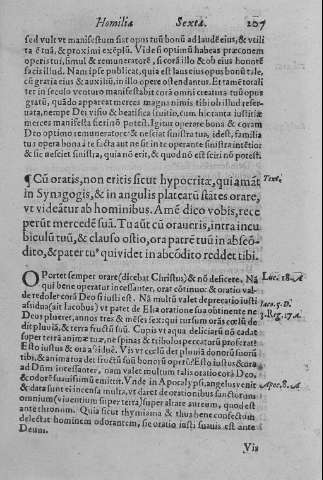 Homilia Sexta. 207
sed vult vt manifestum sit opus tuū ad laudē eius, & vtili
tatē tuā, & proximi exēplū. Vide si optimū habeas præconem
operis tui, simul & remuneratorē, si corā illo & ob eius honorē
facis illud. Nam ipse publicat, quia est laus eius opus bonū ta-
le, clausa est & auxiliū, in illo opere ostendatur. Et tamē tolli
ter in seculo venturo manifestabit corā omni creatura tuū opus
gratū, quādo appareat merces magna nimis tibi ob illud reser-
uata, nempe Dei visio & beatifica fruitio, cum hic tanta iustitiæ
merces manifesta fieri nō potest. Igitur operare bona & coram
Deo optimo remuneratore: & nesciat sinistra tua, idest, familia
tua opera bona à te facta aut ne sit in te operante sinistra intētio:
& sic nesciet sinistra, quia nō erit, & quod nō est sciri nō potest.
¶ Cū oratis, non eritis sicut hypocritæ, qui amāt Text.
in Synagogis, & in angulis platearū stātes orare,
vt videātur ab hominibus. Amē dico vobis, rece
perūt mercedē suā. Tu aūt cū oraueris, intra incu
biculū tuū, & clauso ostio, ora patrē tuū in abscō-
dito, & pater tuꝰ qui videt in abscōdito reddet tibi.
OPortet semper orare (dicebat Christus) & nō deficere. Nā Luc. 18. A
qui bene operatur incessanter, orat cōtinuo: & oratio val-
de redolet corā Deo si iusti est. Nā multū valet deprecatio iusti
assidua (ait Iacobus) vt patet de Elia oratione sua obtinente ne Iaco. 5. D.
Deus plueret, annos tres & mēses sex: qui rursum orās cœlū de 3. Reg. 17. A
dit pluuiā, & terra fructū suū. Cupis vt aqua deliciarū nō cadat
super terrā animæ tuæ, ne spinas & tribulos peccatorū proferat?
Esto iustus & ora assiduè. Vis vt cœlū det pluuiā donorū suorū
tibi, & anima tua det fructū suū bonorū operū? Esto iustus & ora
ad Dūm incessanter, nam valet multum talis oratio corā Deo,
& odorē suauissimū emittit. Vnde in Apocalypsi, angelus venit Apoc. 8. A
& data sunt ei incensa multa, vt daret de orationibus sanctorum
omnium (viuentium super terrā) super altare aureum, quod est
ante thronum. Quia sicut thymiama & thus bene confectum
delectat hominem odorantem, sic oratio iusti suauis est ante
Deum.
Vis